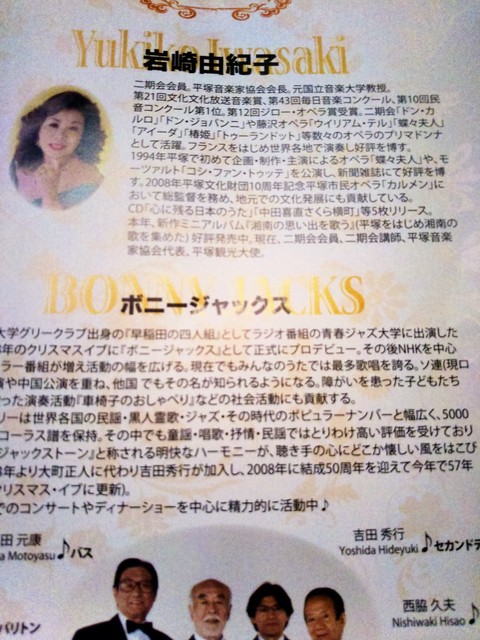 Yukiko Iwasaki
岩崎由紀子
二期会会員。平塚音楽家協会会長。元国立音楽大学教授。
第21回文化文化放送音楽賞、第43回毎日音楽コンクール、第10回民
音コンクール第1位。第12回ジロー・オペラ賞受賞。二期会「ドン・カ
ルロ」「ドン・ジョバンニ」や藤沢オペラ「ウイリアム・テル」「蝶々夫人」
「アイーダ」「椿姫」「トゥーランドット」等数々のオペラのプリマドンナ
として活躍。フランスをはじめ世界各地で演奏し好評を博す。
1994年平塚で初めて企画・制作・主演によるオペラ「蝶々夫人」や、モ
ーツアルト「コシ・ファン・トゥッテ」を公演し、新聞雑誌にて好評を博
す。2008年平塚文化財団10周年記念平塚市民オペラ「カルメン」に
おいて総監督を務め、地元での文化発展にも貢献している。
CD「心に残る日本のうた」「中田喜直さくら横町」等5枚リリース。
本年、新作ミニアルバム『湘南の思い出を歌う』(平塚をはじめ湘南の
歌を集めた) 好評発売中。現在、二期会会員、二期会講師、平塚音楽
家協会代表。平塚観光大使。
BONNY JACKS
ボニージャックス
大学グリークラブ出身の『早稲田の四人組』としてラジオ番組の青春ジャズ大学に出演した
年のクリスマスイブに『ボニージャックス』として正式にプロデビュー。その後NHKを中心
ラー番組が増え活動の幅を広げる。現在でもみんなのうたでは最多歌唱を誇る。ソ連(現ロ
演や中国公演を重ね、他国でもその名が知られるようになる。障がいを患った子どもたち
った演奏活動『車椅子のおしゃべり』などの社会活動にも貢献する。
リーは世界各国の民謡・黒人霊歌・ジャズ・その時代のポピュラーナンバーと幅広く、5000
コーラス譜を保持。その中でも童謡・唱歌・抒情・民謡ではとりわけ高い評価を受けており
ジャックストーン』と称される明快なハーモニーが、聴き手の心にどこか懐しい風をはこび
年より大町正人に代わり吉田秀行が加入し、2008年に結成50周年を迎えて今年で57年
クリスマス・イブに更新)。
でのコンサートやディナーショーを中心に精力的に活動中♪
田 元康
a Motoyasu ♪バス
吉田 秀行
Yoshida Hideyuki ♪セカンドテ
バリトン
西脇 久夫
Nishiwaki Hisao ♪